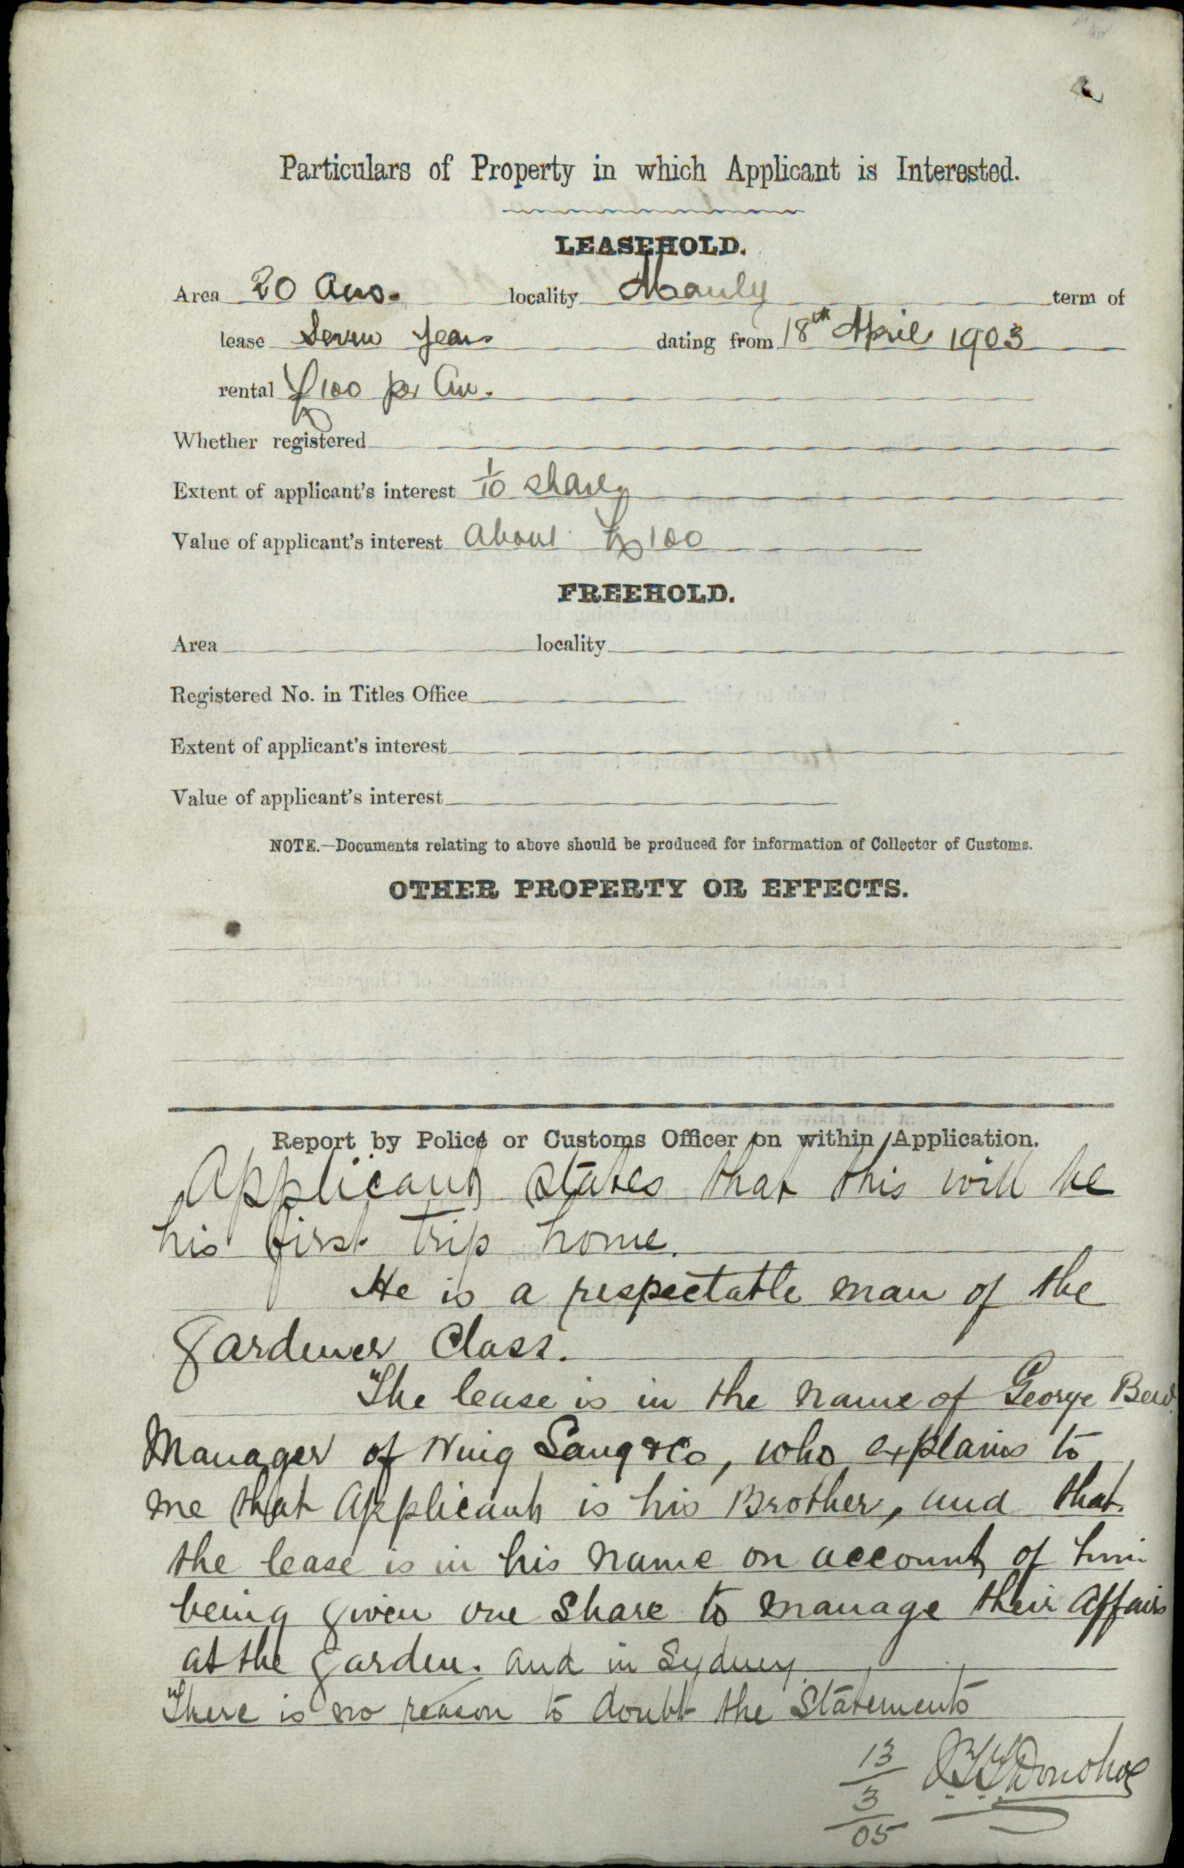 Particulars of Property in which Applicant is Interested.
LEASEHOLD.
Area 20 Acrs. locality Manly term of
lease Seven years dating from 18th April 1903
rental £100 per An.
Whether registered
Extent of applicant's interest 1/10 share
Value of applicant's interest About £100
FREEHOLD.
Area locality
Registered No. in Titles Office
Extent of applicant's interest
Value of applicant's interest
NOTE.—Documents relating to above should be produced for information of Collector of Customs.
OTHER PROPERTY OR EFFECTS.
Report by Police or Customs Officer on within Application.
Applicant states that this will be
his first trip home.
He is a respectable man of the
gardener Class.
The lease is in the name of George Bew
Manager of Wing Sang & Co, who explains to
me that Applicant is his Brother, and that
the lease is in his name on account of him
being given one Share to manage their Affairs
at the garden. and in Sydney.
There is no reason to doubt the Statements
13/3/05 Donohoe